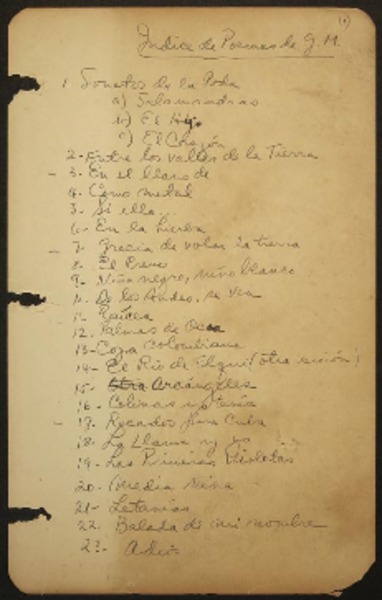 (1)
Indice de Poemas de G.M.
1 Sonetos de la Poda
a) Salamandras
b) El
c) El Corazón
2- Entre los valles de la Tierra
3- En el llano de
4- Como metal
5- Si ella...
6- En la hierba
7- Gracia de volar la tierra
8- El Preso
9- Niño negro, niño blanco
De los Andes, se
11- Raíces
12. Palmas de
13- Copa Colombiana
14- El Río de Elqui (otra versión)
15- Arcángeles
16-
17- Recados para Cuba
18- La Llama y yo
19- Las Primeras Violetas
20- Media
21- Letanías
22. Balada de mi nombre
23- Adiós